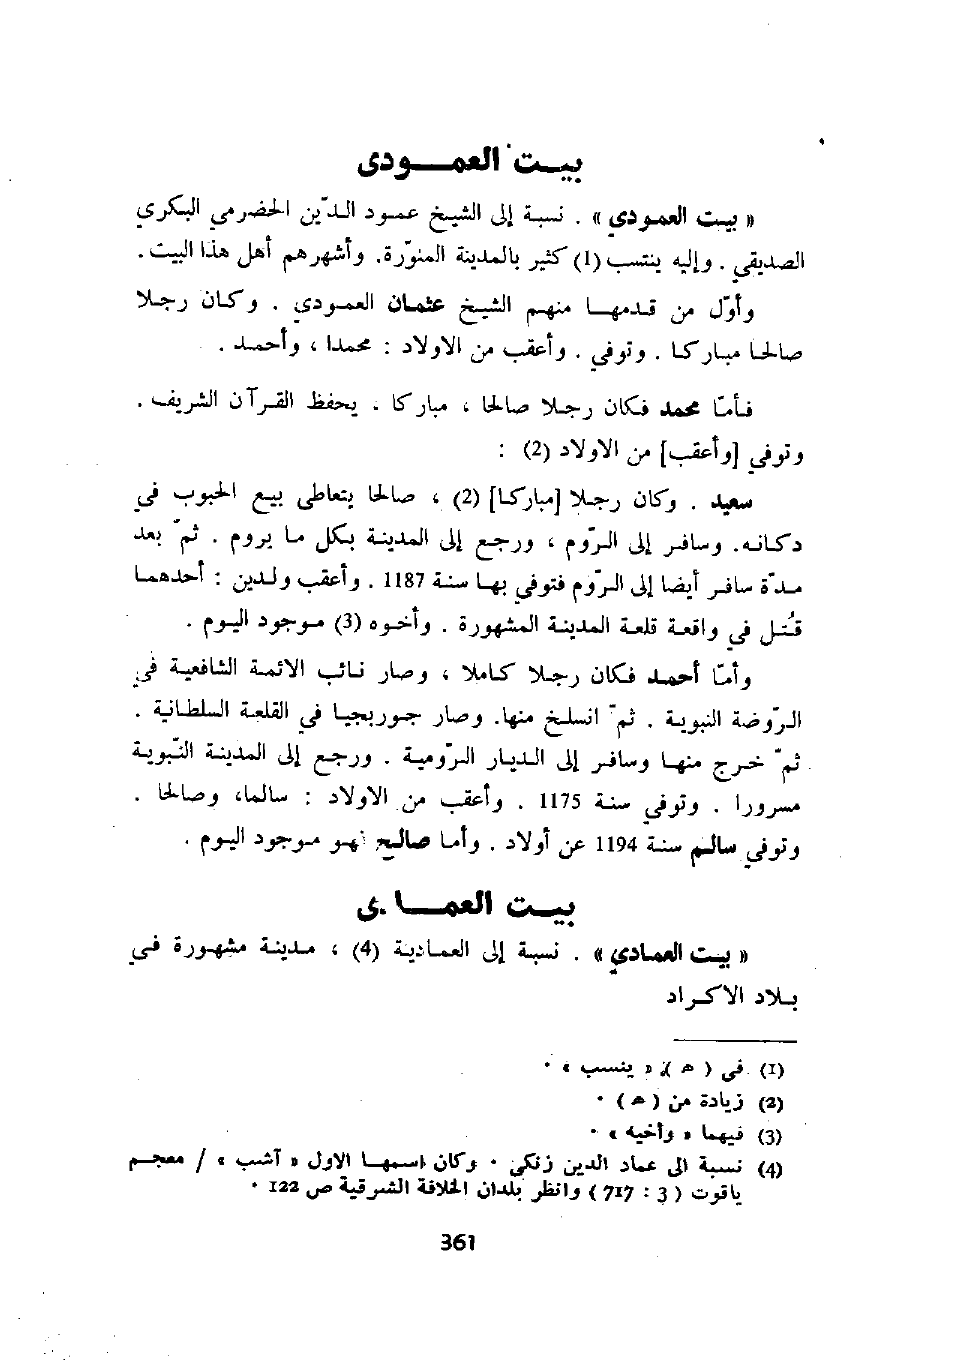 بيت العمودى
« بيت العمودي » . نسبة إلى الشيخ عمود الدّين الحضرمي البكري
الصديقي . وإليه ينتسب (1) كثير بالمدينة المنوّرة. وأشهرهم أهل هذا البيت .
وأوّل من قدمها منهم الشيخ عثمان العمودي . وكان رجلا
صالحا مباركا . وتوفي . وأعقب من الاولاد : محمدا ، وأحمد .
فأمّا محمد فكان رجلا صالحا ، مباركا . يحفظ القرآن الشريف .
وتوفي [وأعقب] من الاولاد (2) :
سعيد . وكان رجلا [مباركا] (2) ، صالحا يتعاطى بيع الحبوب في
دكانه. وسافر إلى الرّوم ، ورجع إلى المدينة بكل ما يروم . ثمّ بعد
مدّة سافر أيضا إلى الرّوم فتوفي بها سنة 1187 . وأعقب ولدين : أحدهما
قُتل في واقعة قلعة المدينة المشهورة . وأخوه (3) موجود اليوم .
وأمّا أحمد فكان رجلا كاملا ، وصار نائب الائمة الشافعية في
الرّوضة النبوية . ثمّ انسلخ منها. وصار جوربجيا في القلعة السلطانية .
ثمّ خرج منها وسافر إلى الديار الرّومية . ورجع إلى المدينة النّبوية
مسرورا . وتوفي سنة 1175 . وأعقب من الاولاد : سالما، وصالحا .
وتوفي سالم سنة 1194 عن أولاد . وأما صالح فهو موجود اليوم .
بيت العمادى
« بيت العمادي » . نسبة إلى العمادية (4) ، مدينة مشهورة في
بلاد الاكراد
(1) في ( ه ) : « ينسب » .
(2) زيادة من ( ه ) .
(3) فيهما « وأخيه » .
(4) نسبة الى عماد الدين زنكي . وكان اسمها الاول « آشب » / معجم
ياقوت ( 3 : 717 ) وانظر بلدان الخلافة الشرقية ص 122 .
361